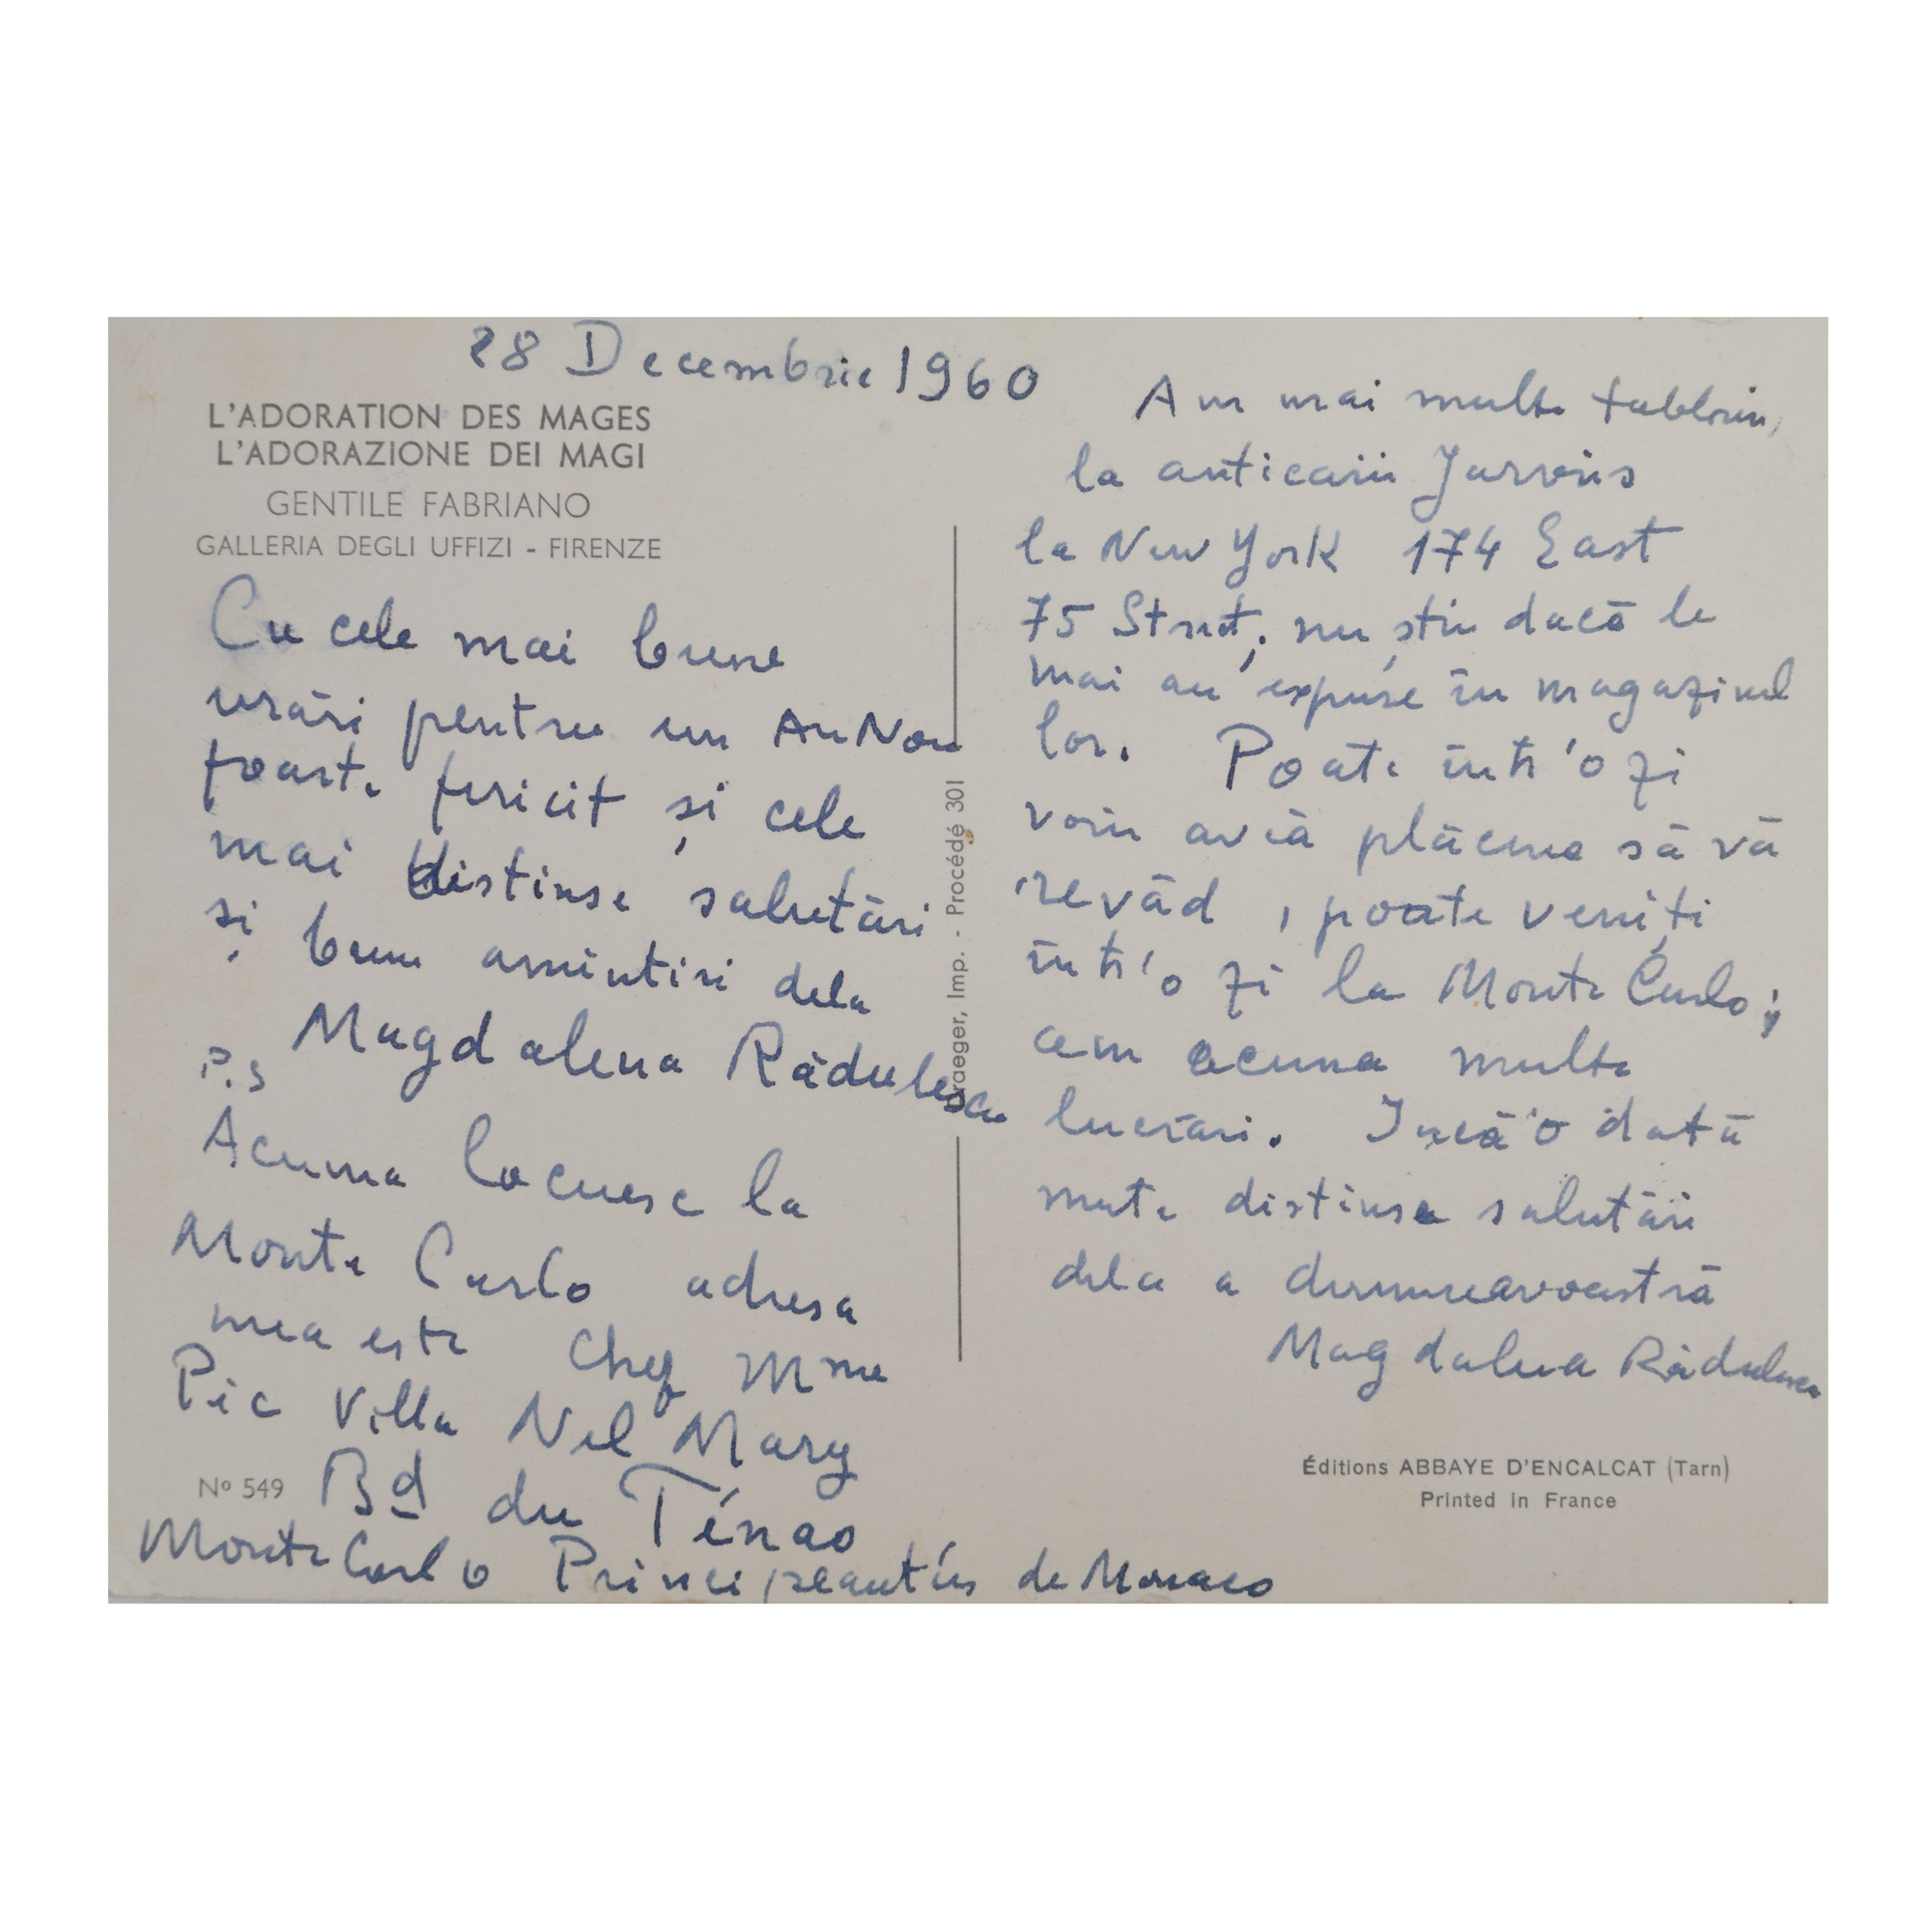 28 Decembrie 1960
L'ADORATION DES MAGES
L'ADORAZIONE DEI MAGI
GENTILE FABRIANO
GALLERIA DEGLI UFFIZI - FIRENZE
Cu cele mai bune
urări pentru un An Nou
foarte fericit și cele
mai distinse salutări
și bune amintiri dela
Magdalena Rădulescu
P.S
Acuma locuesc la
Monte Carlo adresa
mea este chez Mme
Pic Villa Nel Mary
Bd du Ténao
Monte Carlo de Monaco
Nº 549
Draeger, Imp. - Procédé 301
Am mai multe
la anticarii
la New York 174 East
75 Street; nu știu dacă le
mai au expuse în magazinul
lor. Poate într'o zi
voiu aveà plăcerea să vă
revăd, poate veniți
într'o zi la Monte Carlo;
am acuma multe
lucrări. Incă'o dată
multe distinse salutări
dela a dumneavoastră
Magdalena Rădulescu
Éditions ABBAYE D'ENCALCAT (Tarn)
Printed in France